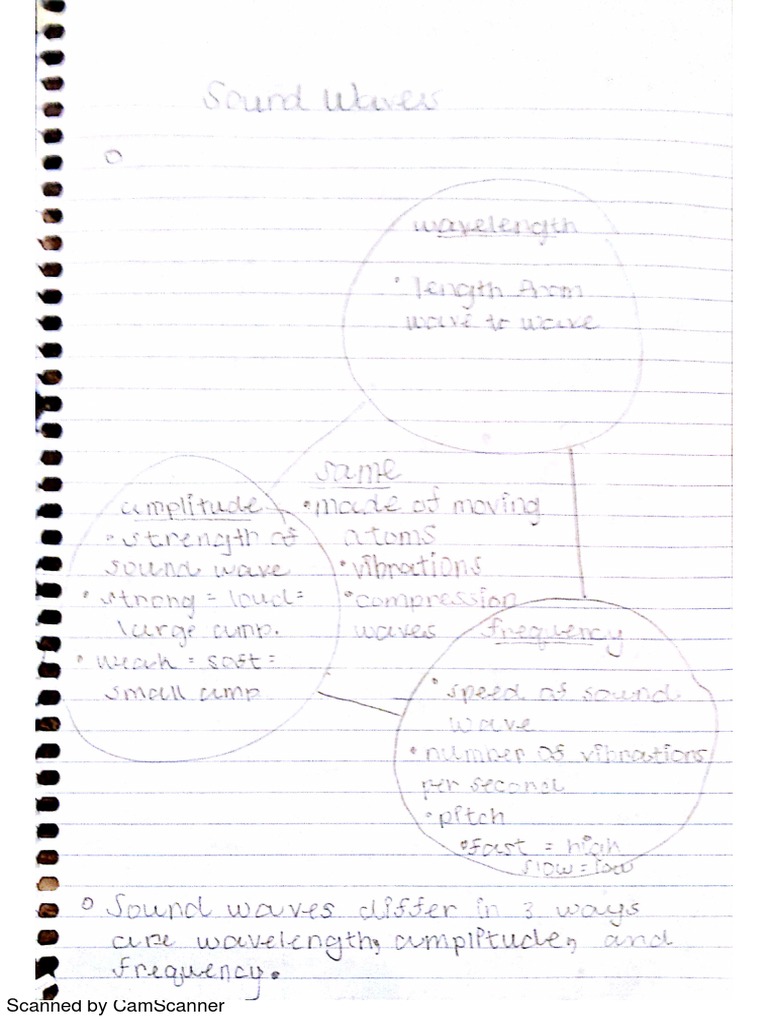 Sound Waves
wavelength
• length from
wave to wave
same
• made of moving
atoms
• vibrations
• compression
waves
amplitude
• strength of
sound wave
• strong = loud =
large amp.
• weak = soft =
small amp
frequency
• speed of sound
wave
• number of vibrations
per second
• pitch
• fast = high
slow = low
o Sound waves differ in 3 ways
are wavelength, amplitude, and
frequency.
Scanned by CamScanner